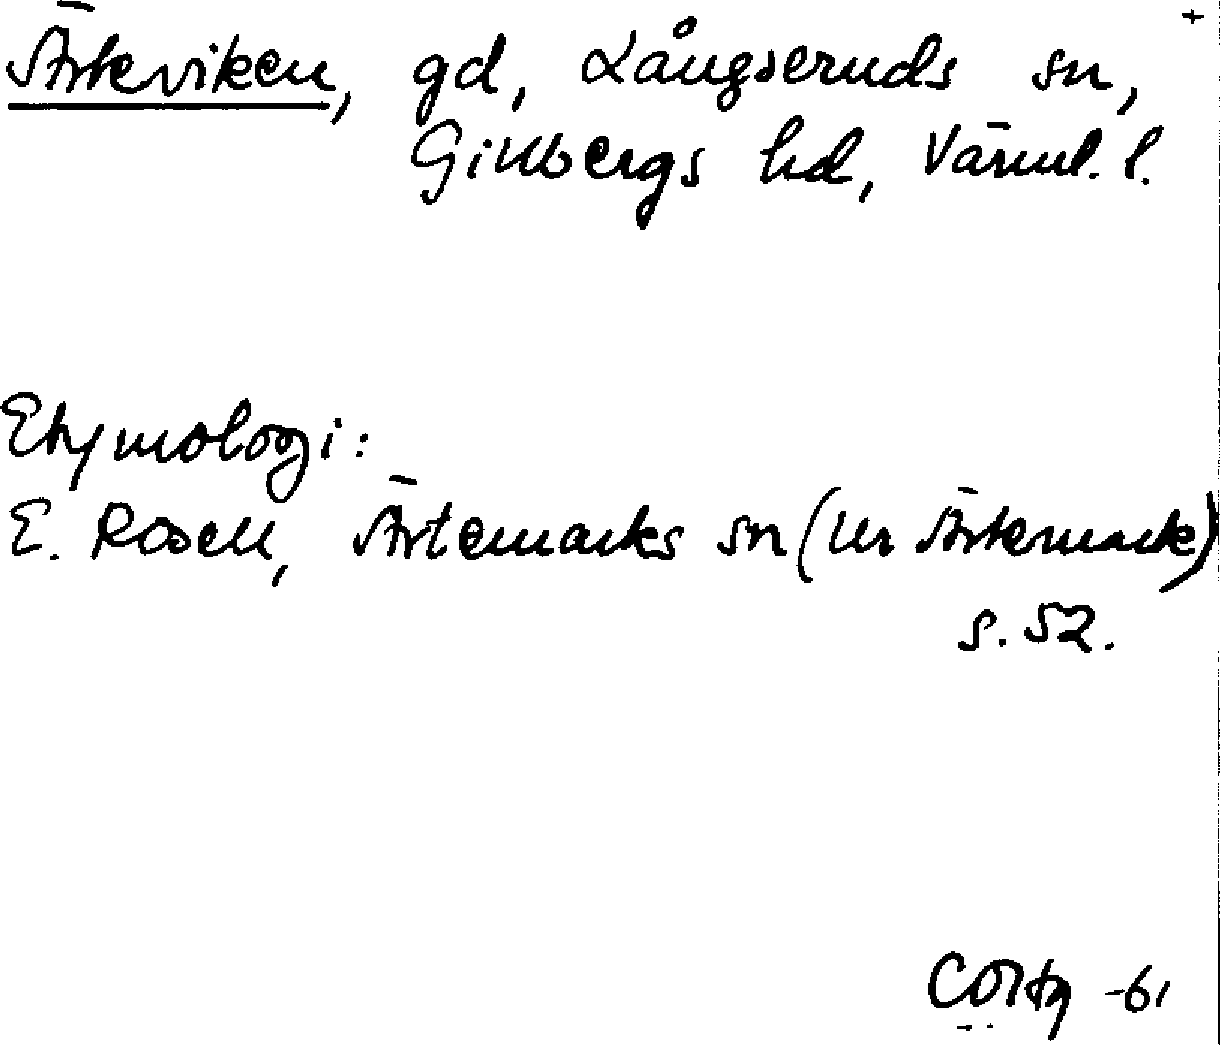 +
Ärteviken, gd, Långseruds sn,
Gillbergs hd, Värml. l.
Etymologi:
E. Rosell, Ärtemarks sn (Ur Ärtemark)
s. 52.
-61